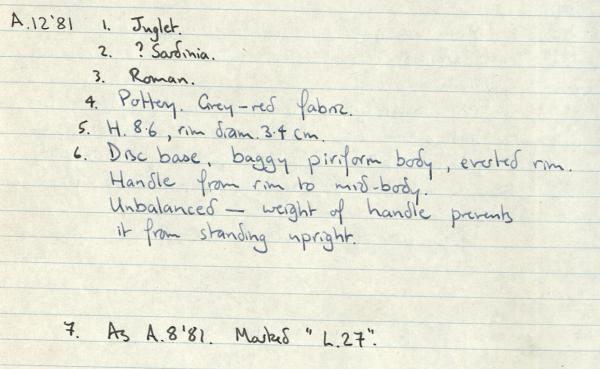 A.12'81 1. Juglet.
2. ? Sardinia.
3. Roman.
4. Pottery. Grey-red fabric.
5. H. 8·6, rim diam. 3·4 cm.
6. Disc base, baggy piriform body, everted rim.
Handle from rim to mid-body.
Unbalanced — weight of handle prevents
it from standing upright.
7. As A.8'81. Marked "L.27".